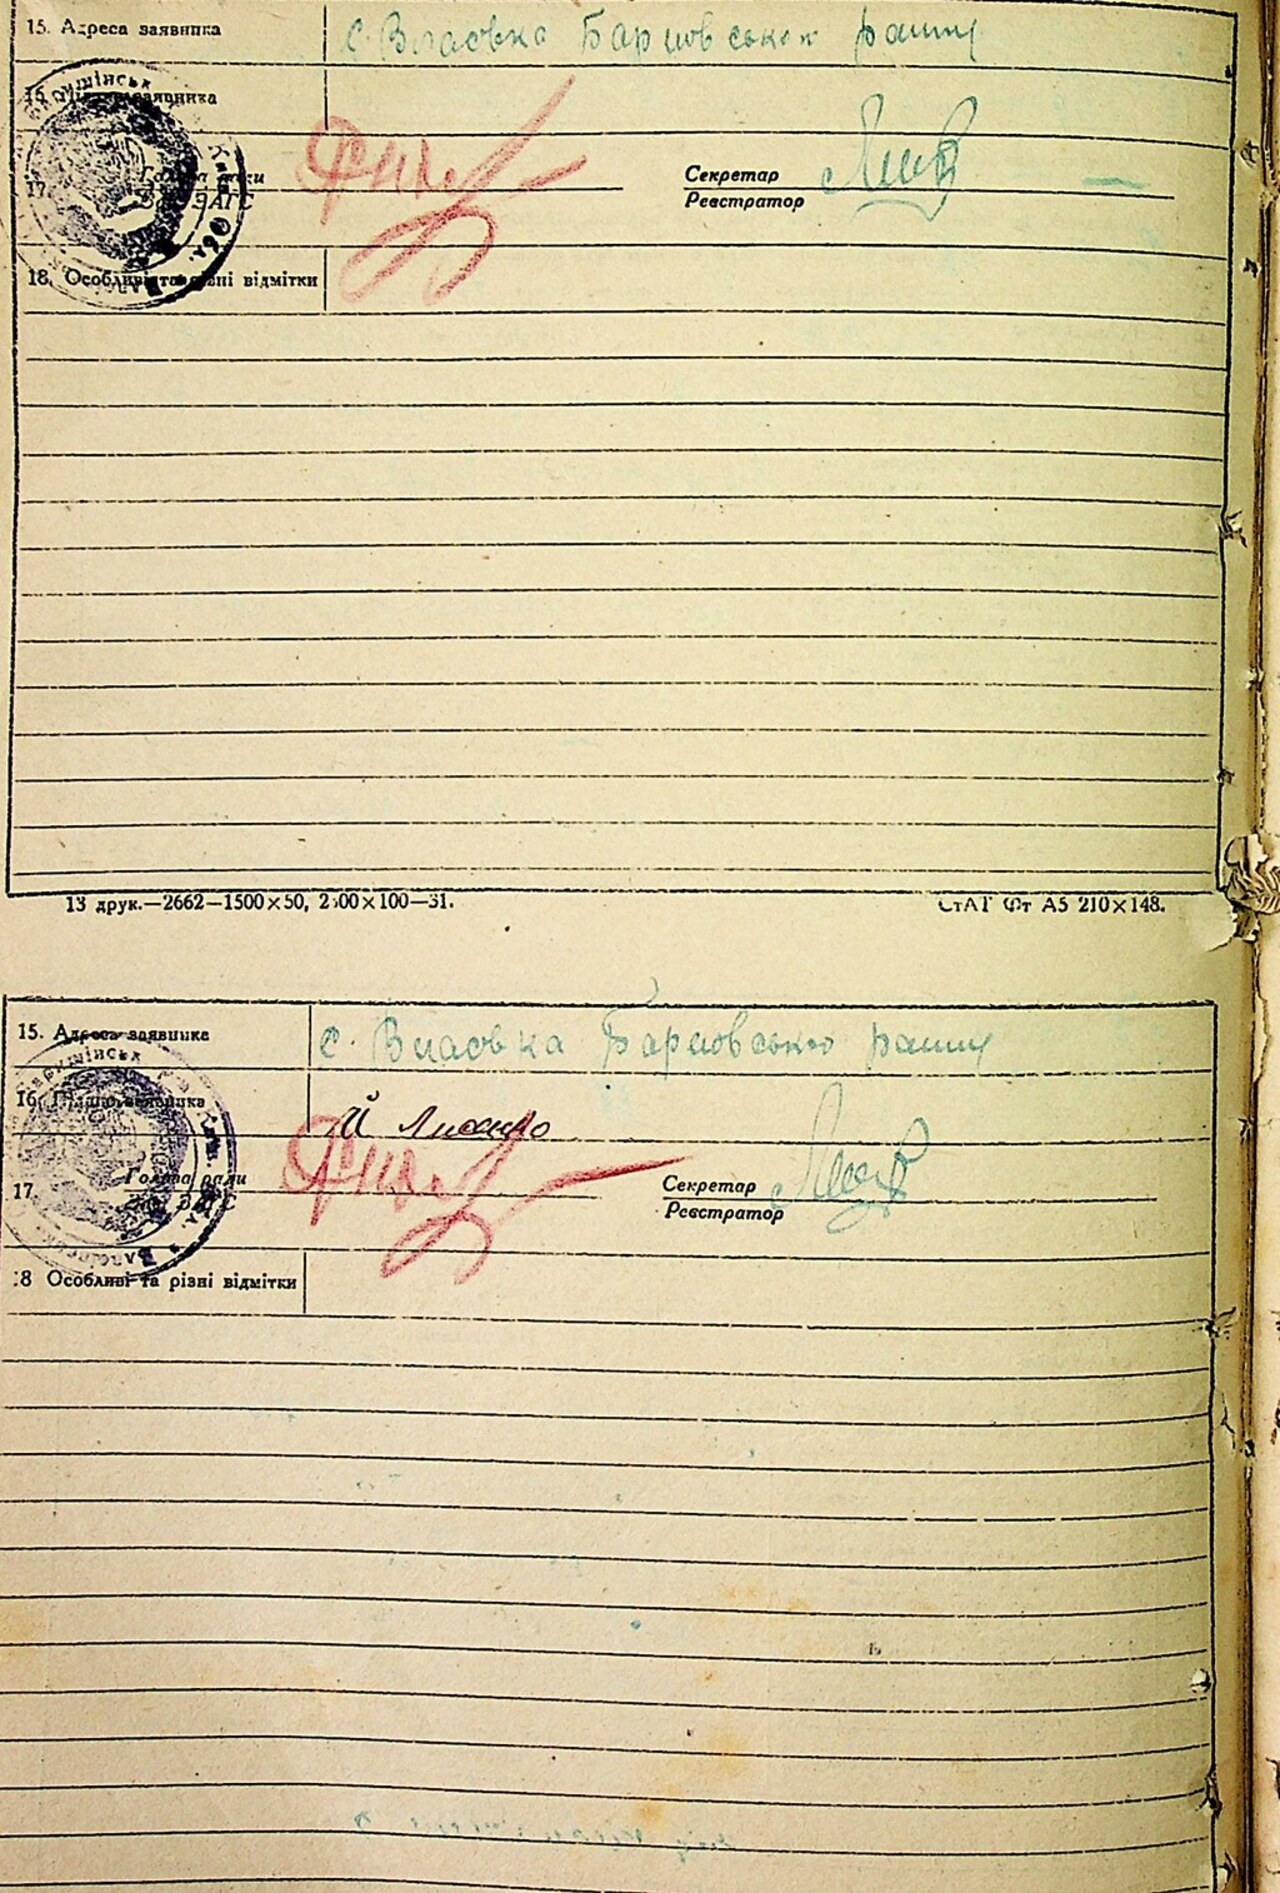 15. Адреса заявника с. Власовка Баришовського району
заявника
17. Голова ради Секретар
ЗАГС Реєстратор
18. Особливі та різні відмітки
13 друк.—2662—1500×50, 2500×100—31. СтАТ Фт А5 210×148.
15. Адреса заявника с. Власовка Баришовського району
16. Підпис заявника Й Лисенко
17. Голова ради Секретар
Зав. ЗАГС Реєстратор
18 Особливі та різні відмітки